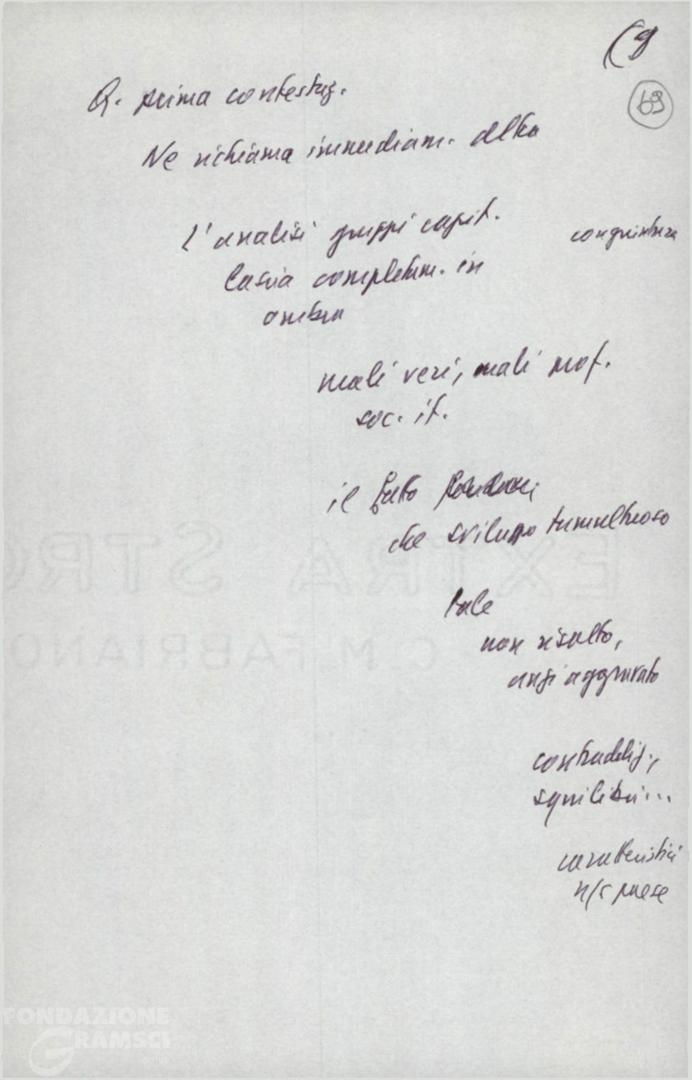 (9
69
Q. prima contestaz.
Ne richiama immediam. altra
L'analisi gruppi capit.
congiuntura
lascia completam. in
ombra
mali veri, mali prof.
soc. it.
il fatto
che sviluppo tumultuoso
tale
non risolto,
anzi aggravato
contraddiz.,
squilibri...
caratteristici
n/s paese
EXTRA STRO
C.M. FABRIANO
FONDAZIONE
GRAMSCI